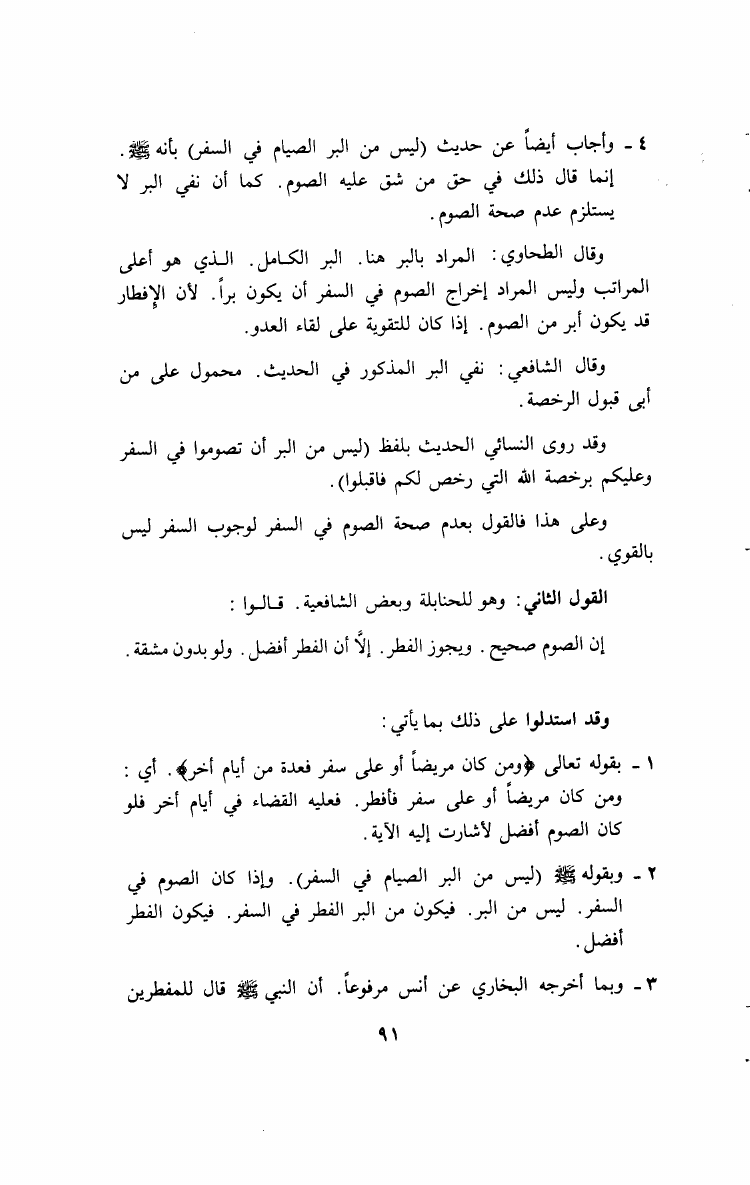 ٤ - وأجاب أيضاً عن حديث (ليس من البر الصيام في السفر) بأنه ﷺ.
إنما قال ذلك في حق من شق عليه الصوم. كما أن نفي البر لا
يستلزم عدم صحة الصوم.
وقال الطحاوي: المراد بالبر هنا. البر الكامل. الذي هو أعلى
المراتب وليس المراد إخراج الصوم في السفر أن يكون براً. لأن الإفطار
قد يكون أبر من الصوم. إذا كان للتقوية على لقاء العدو.
وقال الشافعي: نفي البر المذكور في الحديث. محمول على من
أبى قبول الرخصة.
وقد روى النسائي الحديث بلفظ (ليس من البر أن تصوموا في السفر
وعليكم برخصة الله التي رخص لكم فاقبلوا).
وعلى هذا فالقول بعدم صحة الصوم في السفر لوجوب السفر ليس
بالقوي.
القول الثاني: وهو للحنابلة وبعض الشافعية. قالوا:
إن الصوم صحيح. ويجوز الفطر. إلَّا أن الفطر أفضل. ولو بدون مشقة.
وقد استدلوا على ذلك بما يأتي:
١ - بقوله تعالى ﴿ومن كان مريضاً أو على سفر فعدة من أيام أخر﴾. أي:
ومن كان مريضاً أو على سفر فأفطر. فعليه القضاء في أيام أخر فلو
كان الصوم أفضل لأشارت إليه الآية.
٢ - وبقوله ﷺ (ليس من البر الصيام في السفر). وإذا كان الصوم في
السفر. ليس من البر. فيكون من البر الفطر في السفر. فيكون الفطر
أفضل.
٣ - وبما أخرجه البخاري عن أنس مرفوعاً. أن النبي ﷺ قال للمفطرين
٩١